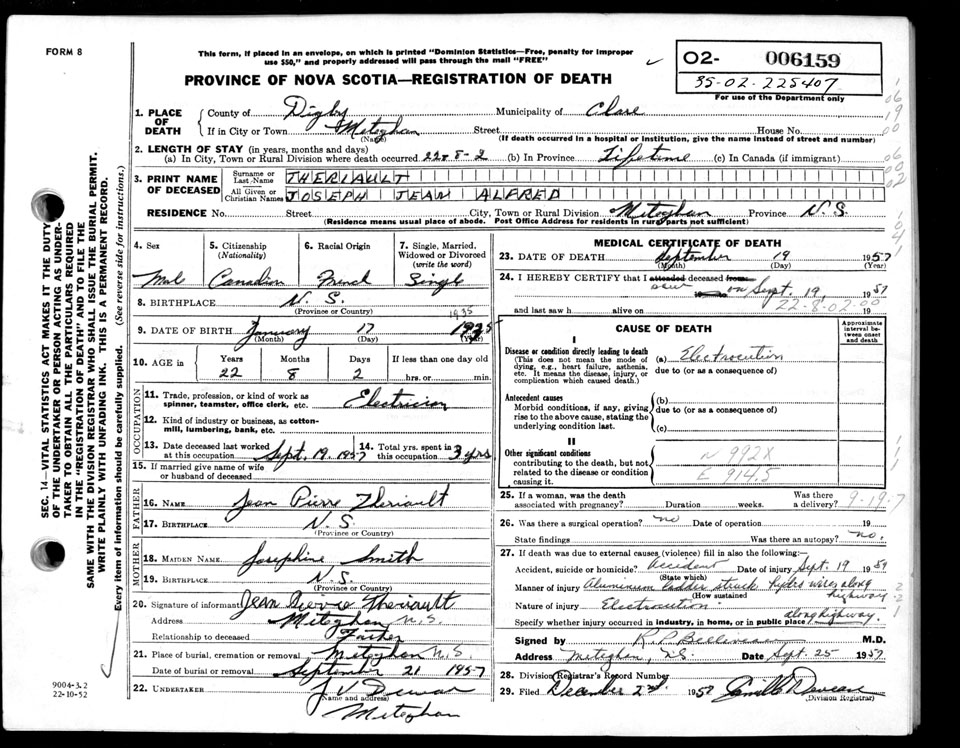 FORM 8
This form, if placed in an envelope, on which is printed "Dominion Statistics—Free, penalty for improper
use $50," and properly addressed will pass through the mail "FREE"
PROVINCE OF NOVA SCOTIA—REGISTRATION OF DEATH
O2- 006159
35-02-225407
For use of the Department only
1. PLACE OF DEATH
County of Digby Municipality of Clare
If in City or Town Meteghan Street House No.
(Name) (If death occurred in a hospital or institution, give the name instead of street and number)
2. LENGTH OF STAY (in years, months and days)
(a) In City, Town or Rural Division where death occurred 22-8-2 (b) In Province Lifetime (c) In Canada (if immigrant)
3. PRINT NAME OF DECEASED
Surname or Last Name THERIAULT
All Given or Christian Names JOSEPH JEAN ALFRED
RESIDENCE No. Street City, Town or Rural Division Meteghan Province N.S.
(Residence means usual place of abode. Post Office Address for residents in rural parts not sufficient)
4. Sex Male
5. Citizenship (Nationality) Canadian
6. Racial Origin French
7. Single, Married, Widowed or Divorced (write the word) Single
8. BIRTHPLACE N.S.
(Province or Country)
1935
9. DATE OF BIRTH January 17 1935
(Month) (Day) (Year)
10. AGE in Years Months Days If less than one day old
22 8 2 hrs. or min.
OCCUPATION
11. Trade, profession, or kind of work as spinner, teamster, office clerk, etc. Electrician
12. Kind of industry or business, as cotton-mill, lumbering, bank, etc.
13. Date deceased last worked at this occupation Sept. 19 1957
14. Total yrs. spent in this occupation 3 yrs
15. If married give name of wife or husband of deceased
FATHER
16. NAME Jean Pierre Theriault
17. BIRTHPLACE N.S.
(Province or Country)
MOTHER
18. MAIDEN NAME Josephine Smith
19. BIRTHPLACE N.S.
(Province or Country)
20. Signature of informant Jean Pierre Theriault
Address Meteghan N.S.
Relationship to deceased Father
21. Place of burial, cremation or removal Meteghan N.S.
Date of burial or removal September 21 1957
22. UNDERTAKER
(Name and address)
Meteghan
MEDICAL CERTIFICATE OF DEATH
23. DATE OF DEATH September 19 1957
(Month) (Day) (Year)
24. I HEREBY CERTIFY that I attended deceased from
saw on Sept. 19, 1957
22-8-02-00
and last saw h alive on 19
CAUSE OF DEATH
Approximate interval between onset and death
I
Disease or condition directly leading to death
(This does not mean the mode of dying, e.g., heart failure, asthenia, etc. It means the disease, injury, or complication which caused death.)
(a) Electrocution
due to (or as a consequence of)
Antecedent causes
Morbid conditions, if any, giving rise to the above cause, stating the underlying condition last.
(b)
due to (or as a consequence of)
(c)
II
Other significant conditions
contributing to the death, but not related to the disease or condition causing it.
N 992X
E 914.5
25. If a woman, was the death associated with pregnancy? Duration weeks. Was there a delivery?
9-19-7
26. Was there a surgical operation? no Date of operation 19
State findings Was there an autopsy? no.
27. If death was due to external causes (violence) fill in also the following:
Accident, suicide or homicide? Accident Date of injury Sept. 19 1957
(State which)
Manner of injury Aluminum ladder struck hydro wires along highway
(How sustained)
Nature of injury Electrocution
along highway.
Specify whether injury occurred in industry, in home, or in public place
Signed by R P Belliveau M.D.
Address Meteghan, N.S. Date Sept. 25 1957
28. Division Registrar's Record Number
29. Filed December 2nd. 1957
(Division Registrar)
9004-3.2
22-10-52
SEC. 14—VITAL STATISTICS ACT MAKES IT THE DUTY
OF THE UNDERTAKER OR PERSON ACTING AS UNDER-
TAKER TO OBTAIN ALL THE PARTICULARS REQUIRED
IN THE "REGISTRATION OF DEATH" AND TO FILE THE
SAME WITH THE DIVISION REGISTRAR WHO SHALL ISSUE THE BURIAL PERMIT.
WRITE PLAINLY WITH UNFADING INK. THIS IS A PERMANENT RECORD.
Every item of information should be carefully supplied. (See reverse side for instructions.)